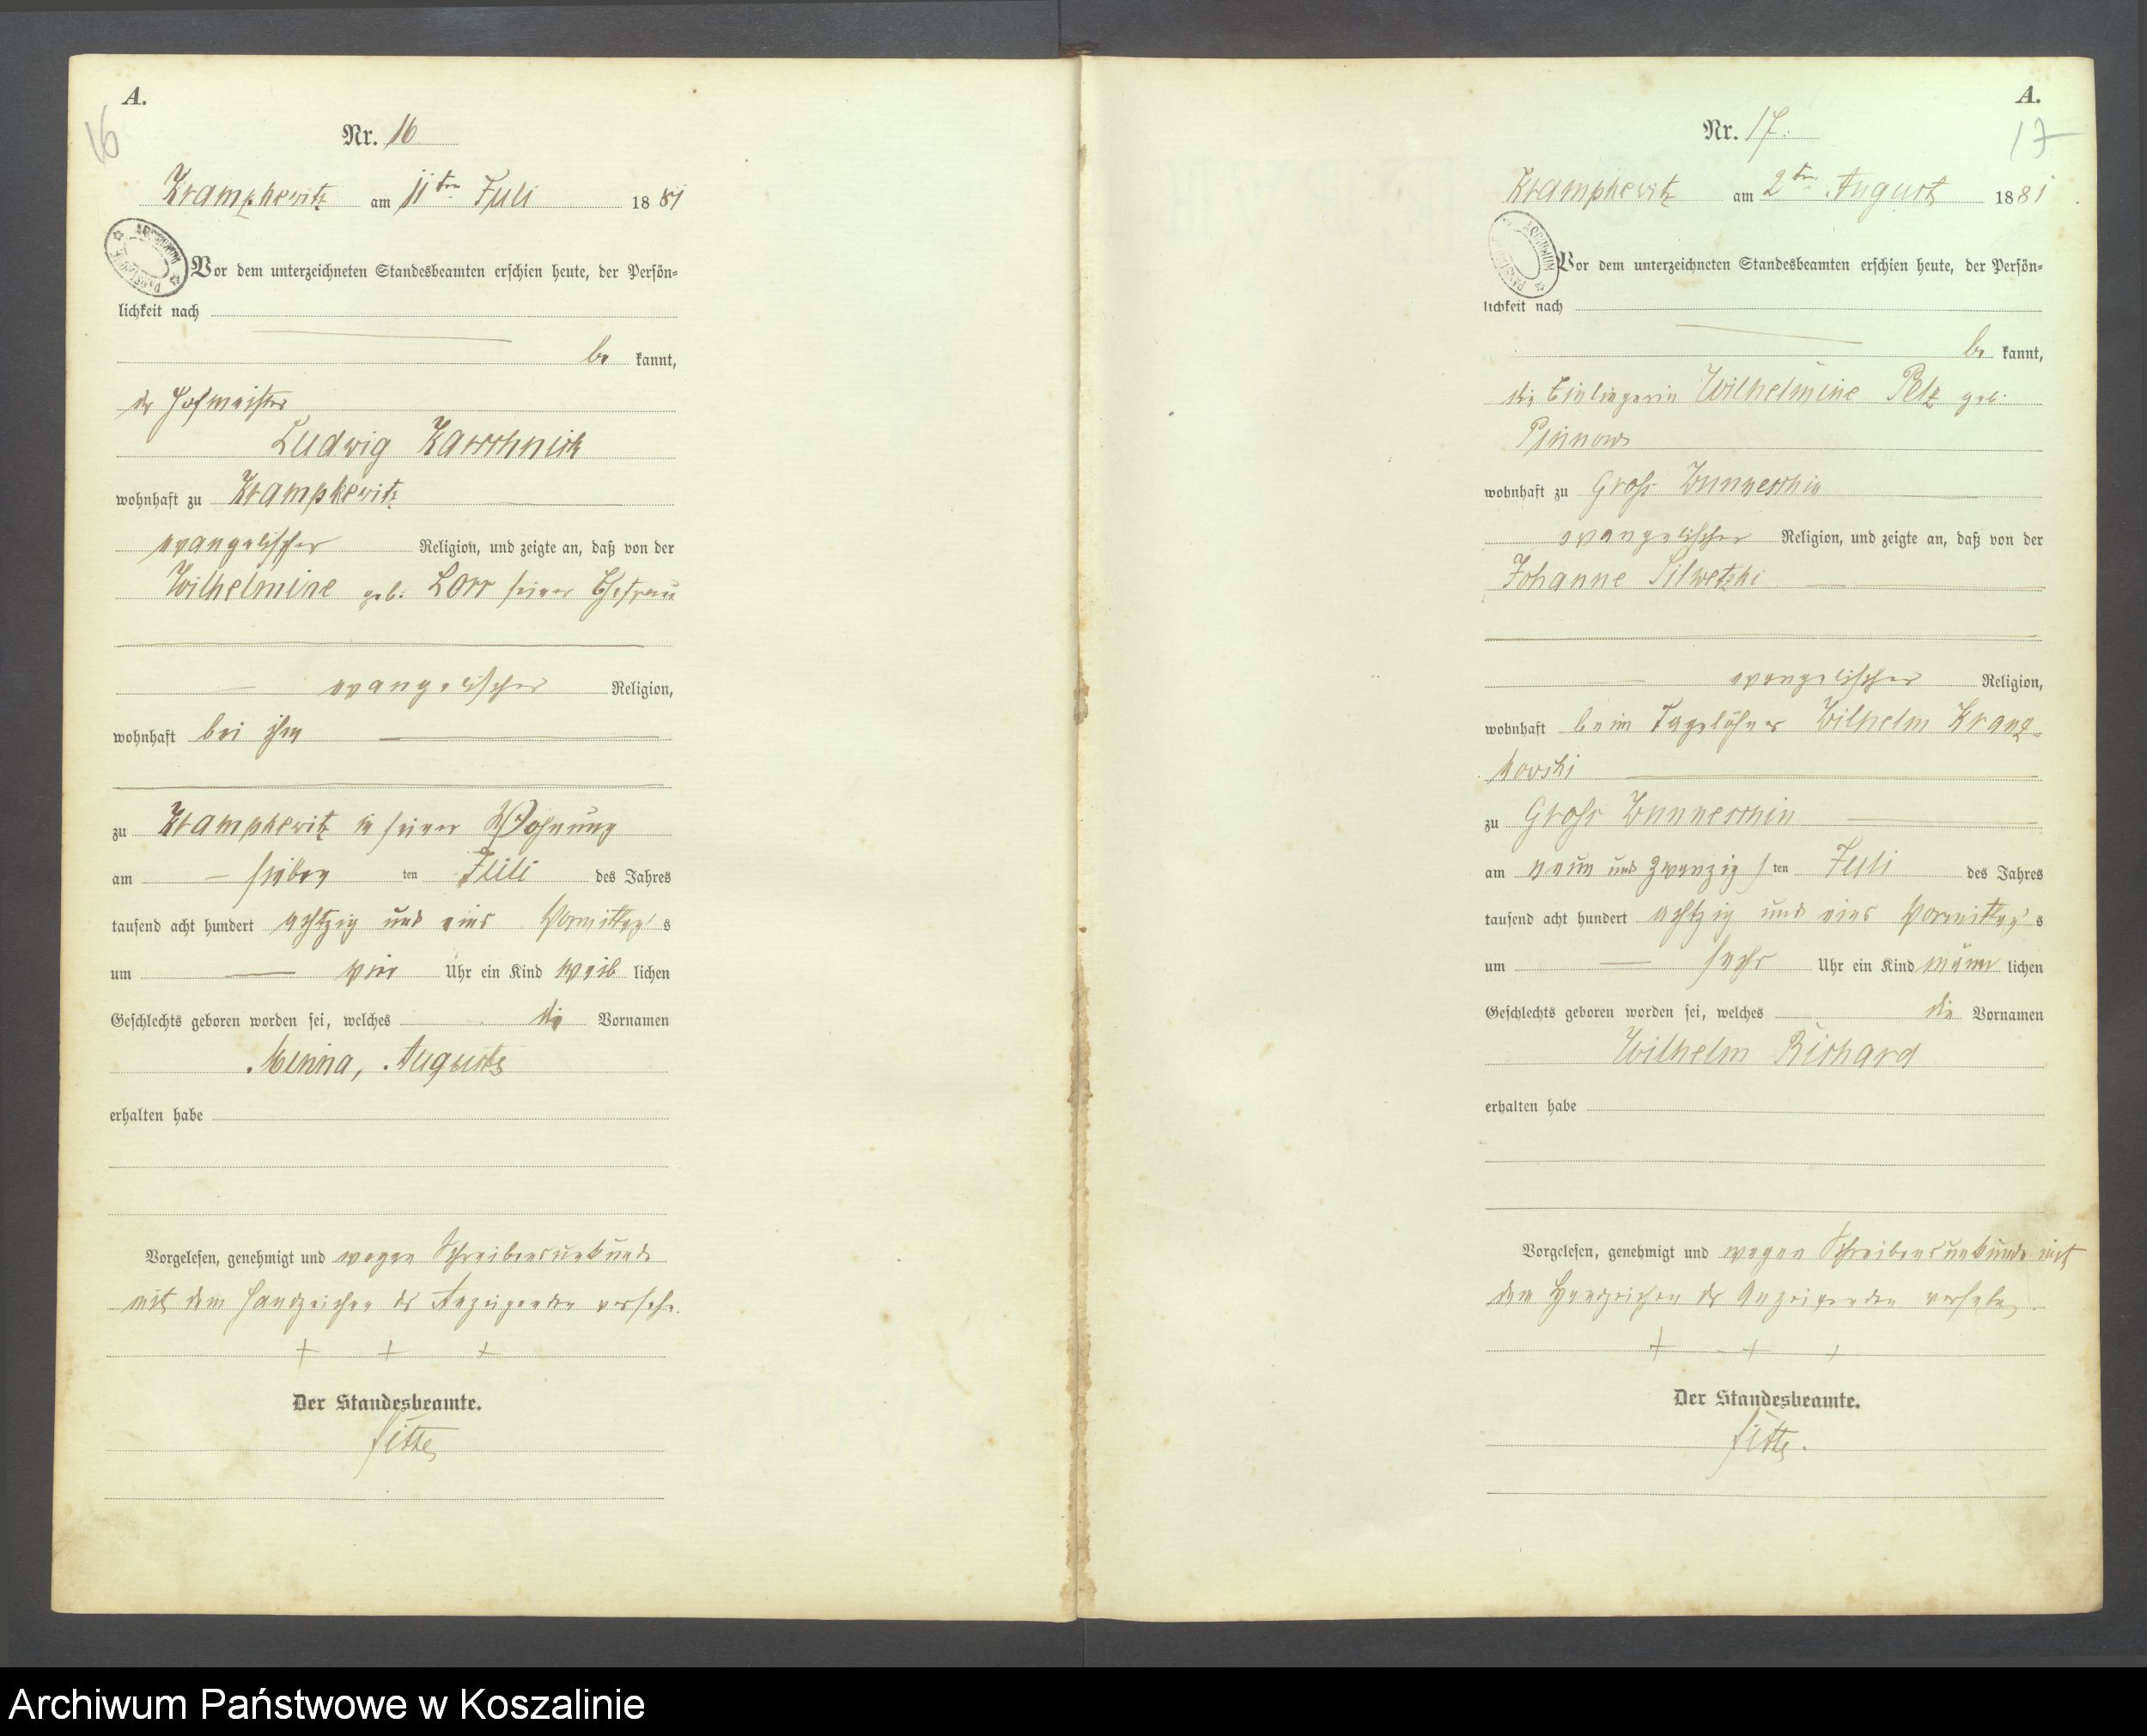 A.
16
Nr. 16
Krampkewitz am 11ten Juli 1881
Vor dem unterzeichneten Standesbeamten erschien heute, der Persön=
lichkeit nach
be kannt,
der Hofmeister
Ludwig Karschnick
wohnhaft zu Krampkewitz
evangelischer Religion, und zeigte an, daß von der
Wilhelmine geb. Lorr seiner Ehefrau
evangelischer Religion,
wohnhaft bei ihm
zu Krampkewitz in seiner Wohnung
am sieben ten Juli des Jahres
tausend acht hundert achtzig und eins Vormittags
um vier Uhr ein Kind weib lichen
Geschlechts geboren worden sei, welches die Vornamen
Minna, Auguste
erhalten habe
Vorgelesen, genehmigt und wegen Schreibensunkunde
mit dem Handzeichen des Anzeigenden versehn.
+ + +
Der Standesbeamte.
A.
17
Nr. 17.
Krampkewitz am 2ten August 1881
Vor dem unterzeichneten Standesbeamten erschien heute, der Persön=
lichkeit nach
be kannt,
die Einliegerin Wilhelmine Pelz geb.
Pinnow
wohnhaft zu Gross Wunneschin
evangelischer Religion, und zeigte an, daß von der
Johanne Silwetzki
evangelischer Religion,
wohnhaft beim Tagelöhner Wilhelm Kranz-
kowski
zu Gross Wunneschin
am neun und zwanzig sten Juli des Jahres
tausend acht hundert achtzig und eins Vormittags
um sechs Uhr ein Kind männ lichen
Geschlechts geboren worden sei, welches die Vornamen
Wilhelm Richard
erhalten habe
Vorgelesen, genehmigt und wegen Schreibensunkunde mit
dem Handzeichen der Anzeigenden versehen.
+ + +
Der Standesbeamte.
Archiwum Państwowe w Koszalinie